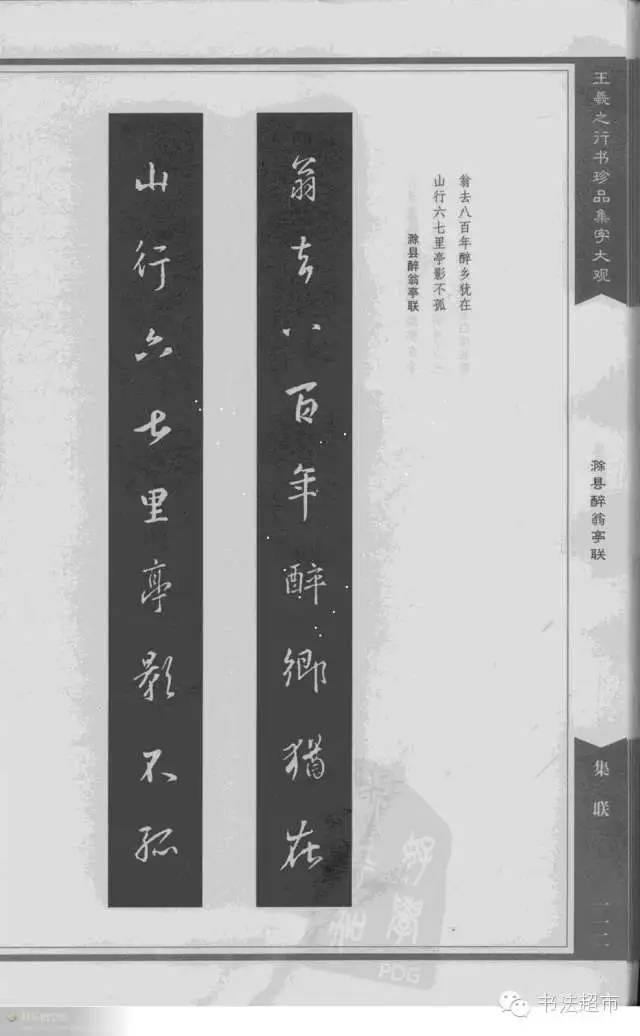 王羲之行书珍品集字大观
滁县醉翁亭联
集联
一一一
翁去八百年醉乡犹在
山行六七里亭影不孤
滁县醉翁亭联
翁去八百年醉鄉猶在
山行六七里亭影不孤
PDG
书法超市